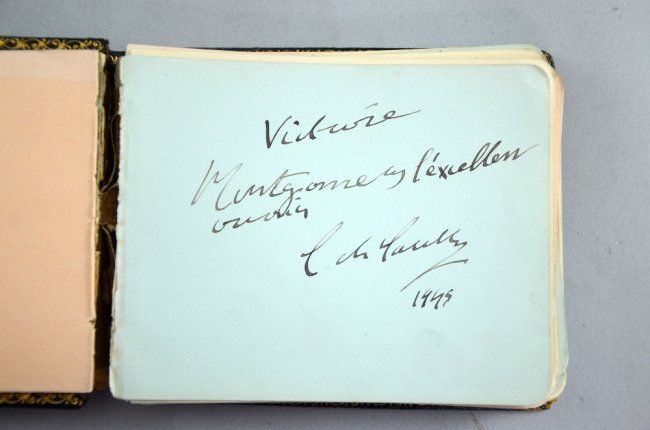 Victoire
Montgomery l'excellent
ouvrier
C. de Gaulle
1945